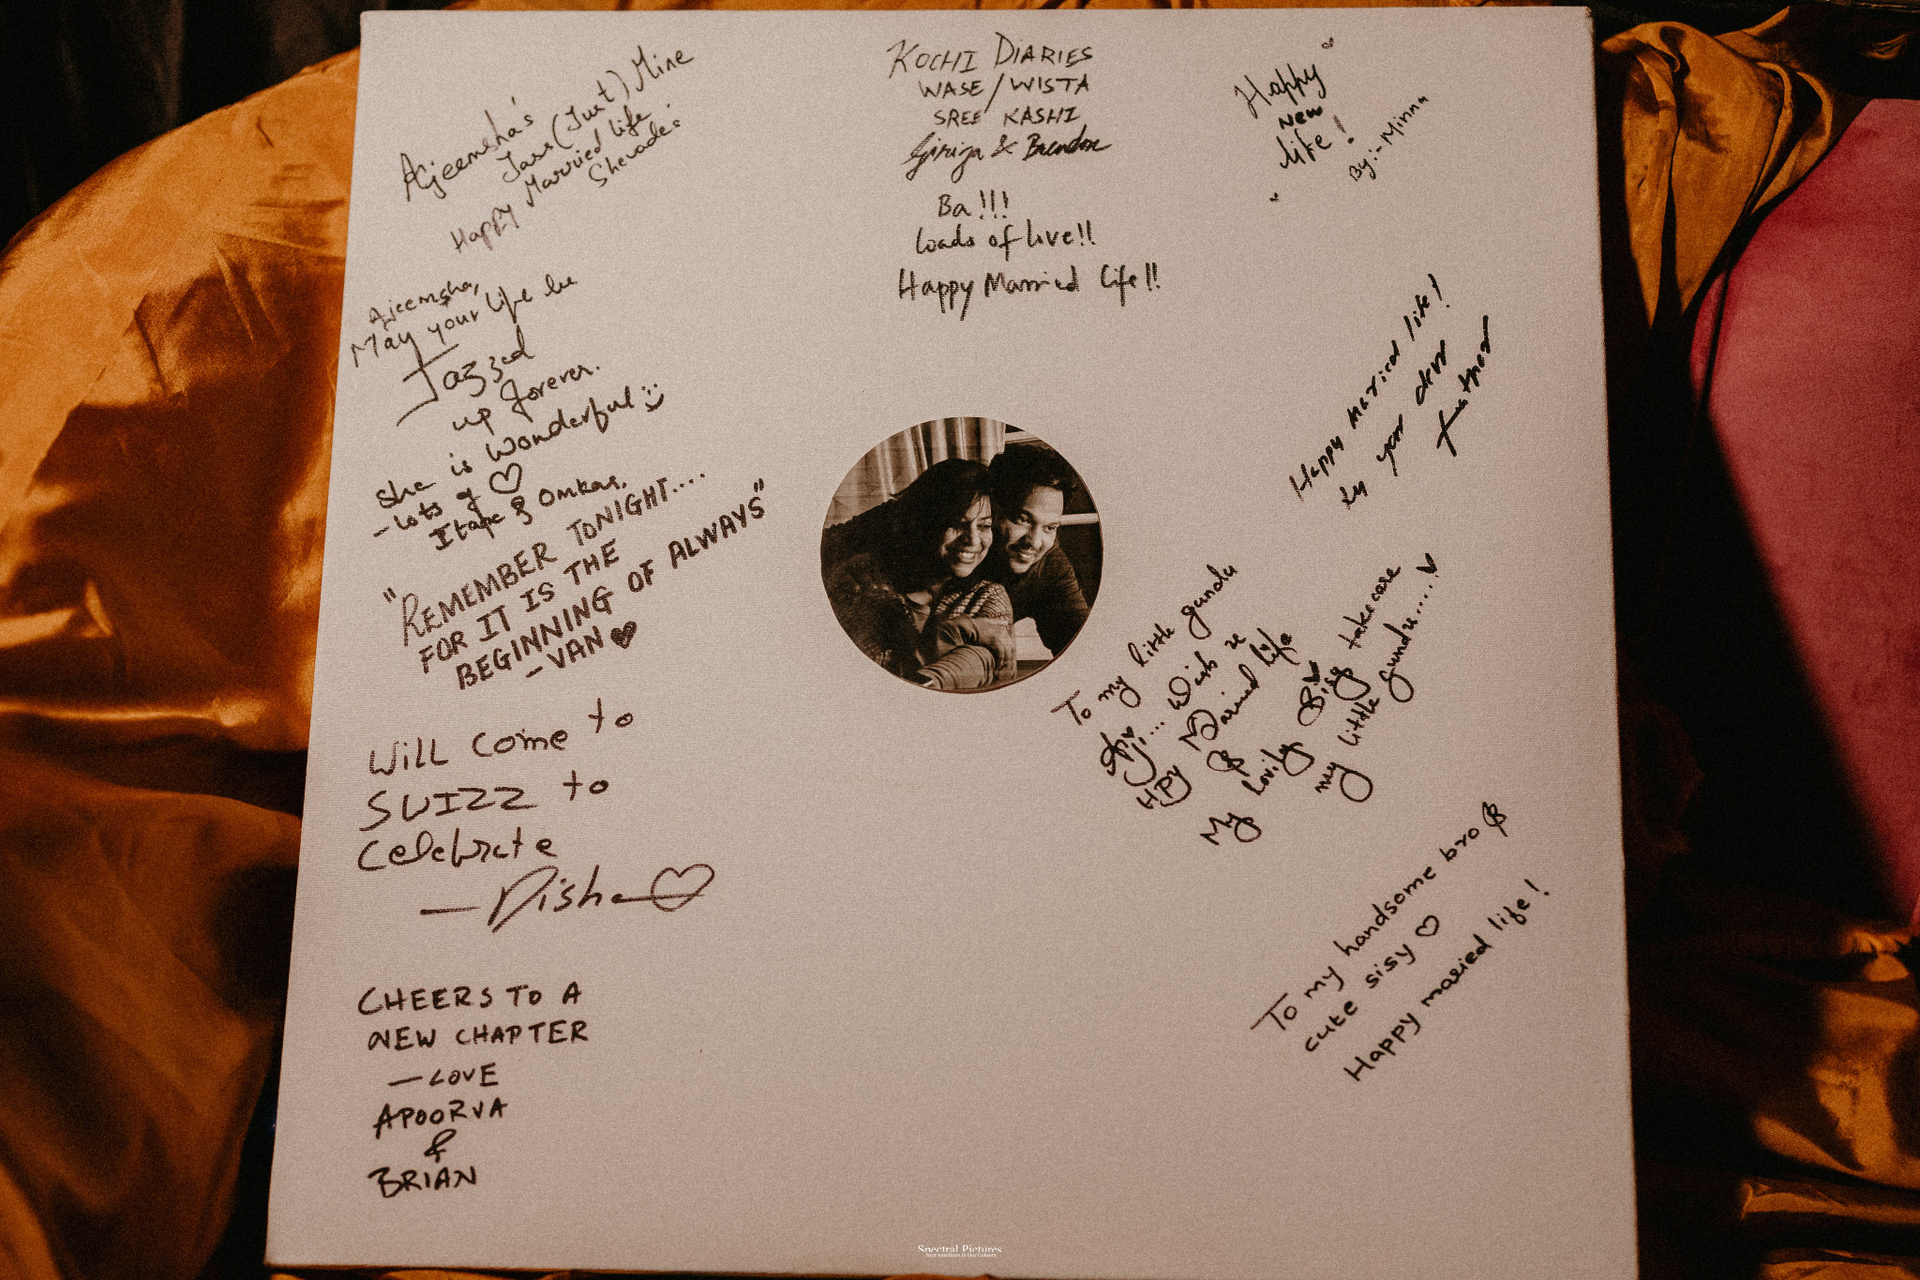 Ajeemsha's
Jass (Just) Mine
Happy Married life
Shevade.
Ajeemsha,
May your life be
Jazzed
up forever.
She is wonderful
- lots of ♡
& Omkar.
"REMEMBER TONIGHT....
FOR IT IS THE
BEGINNING OF ALWAYS"
- VAN ♥
Will come to
SWIZZ to
Celebrate
— Disha ♡
CHEERS TO A
NEW CHAPTER
— LOVE
APOORVA
&
BRIAN
KOCHI DIARIES
WASE/WISTA
SREE KASHI
Girija & Brendon
Ba!!!
Loads of love!!
Happy Married Life!!
Happy
New
life!
By:- Minnu
Happy married life!
by your dear
father
To my little gundu
Aji... Wish u
HPY Married life
&
My lovily Bisy takecare
my little gundu.....♥
To my handsome bro &
cute sisy ♡
Happy maried life!
Spectral Pictures